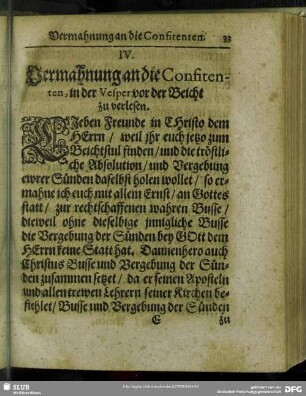 Vermahnung an die Confitenten. 33
IV.
Vermahnung an die Confiten-
ten, in der Vesper vor der Beicht
zu verlesen.
LIeben Freunde in CHristo dem
HErrn / weil jhr euch jetzo zum
Beichtstul finden / und die tröstli-
che Absolution / und Vergebung
ewrer Sünden daselbst holen wollet / so er-
mahne ich euch mit allem Ernst / an Gottes
statt / zur rechtschaffenen wahren Busse /
dieweil ohne dieselbige jnnigliche Busse
die Vergebung der Sünden bey GOtt dem
HErrn keine Statt hat. Dannenhero auch
Christus Busse und Vergebung der Sün-
den zusammen setzet / da er seinen Aposteln
und allen trewen Lehrern seiner Kirchen be-
fiehlet / Busse und Vergebung der Sünden
E zu
SLUB
Wir führen Wissen.
gefördert von der
DFG
Deutschen Forschungsgemeinschaft